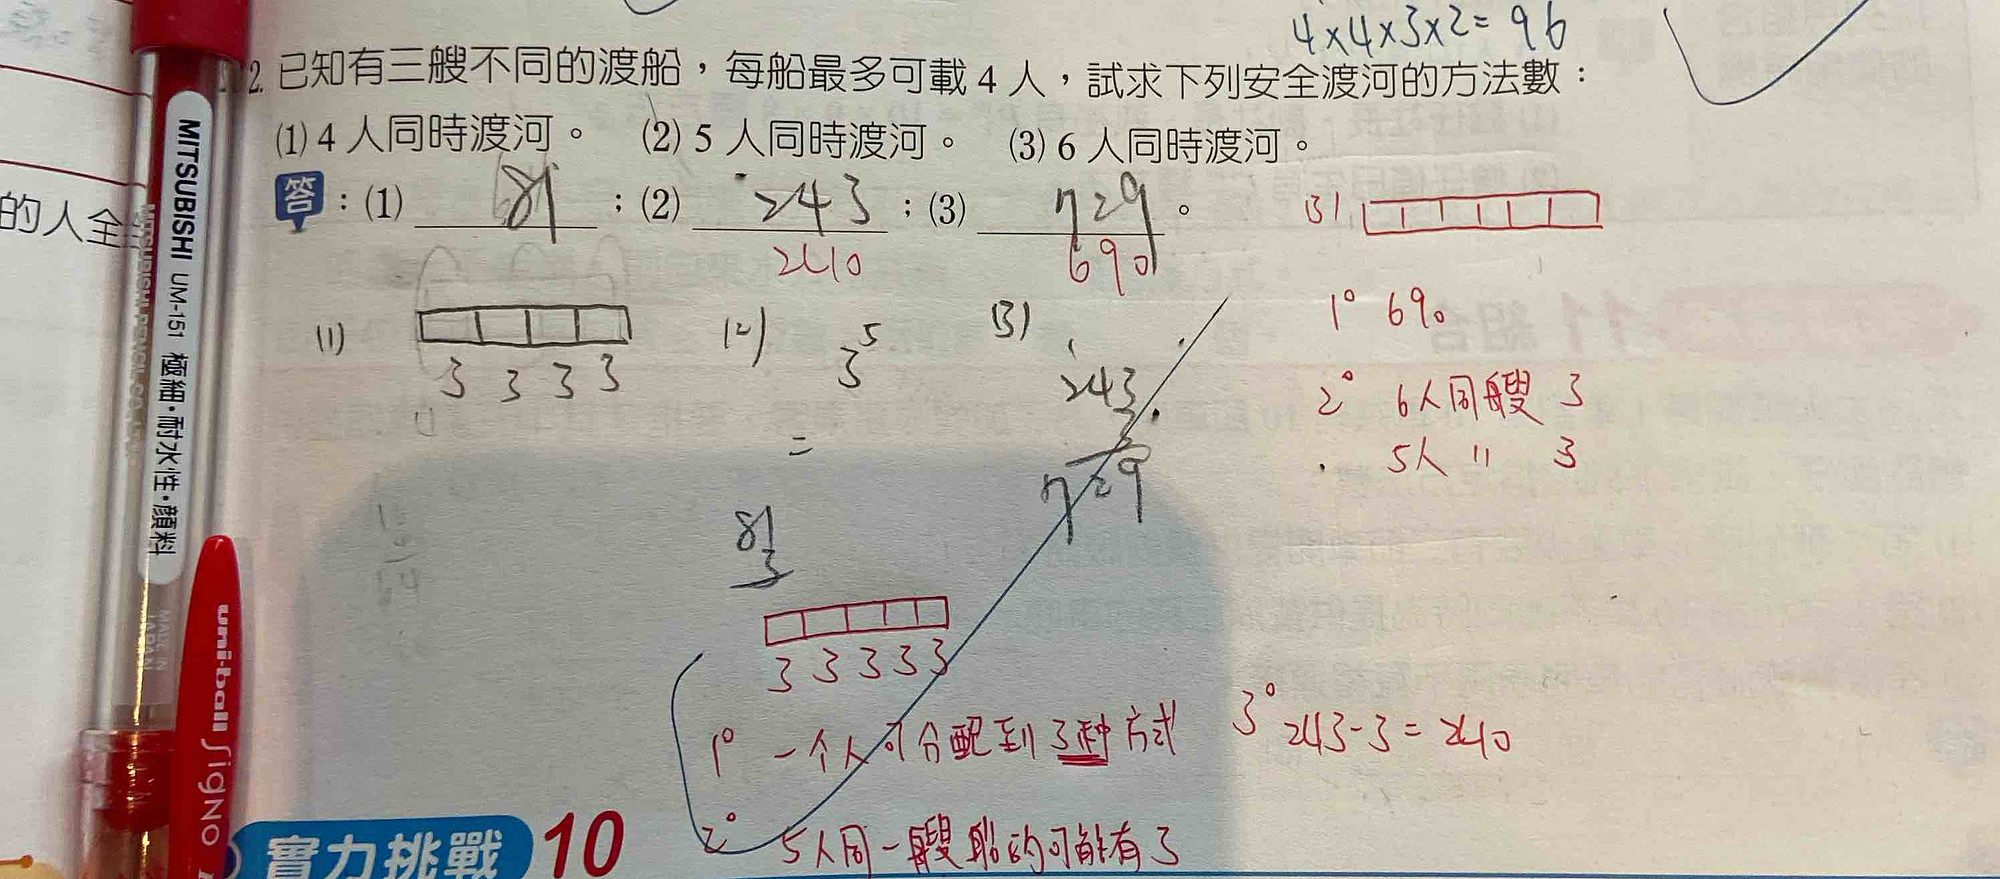 4×4×3×2=96
2. 已知有三艘不同的渡船，每船最多可載 4 人，試求下列安全渡河的方法數：
(1) 4 人同時渡河。 (2) 5 人同時渡河。 (3) 6 人同時渡河。
答：(1) 81 ；(2) 243 ；(3) 729 。
240
690
的人全
(1)
3 3 3 3
(2) 3⁵
=
81
3
(3)
243
3
729
3 3 3 3 3
1° 一个人可分配到3种方式
2° 5人同一艘船的可能有3
3° 243-3=240
(3)
1° 690
2° 6人同艘 3
5人 〃 3
MITSUBISHI UM-151 極細・耐水性・顔料
uni-ball SigNO
實力挑戰 10